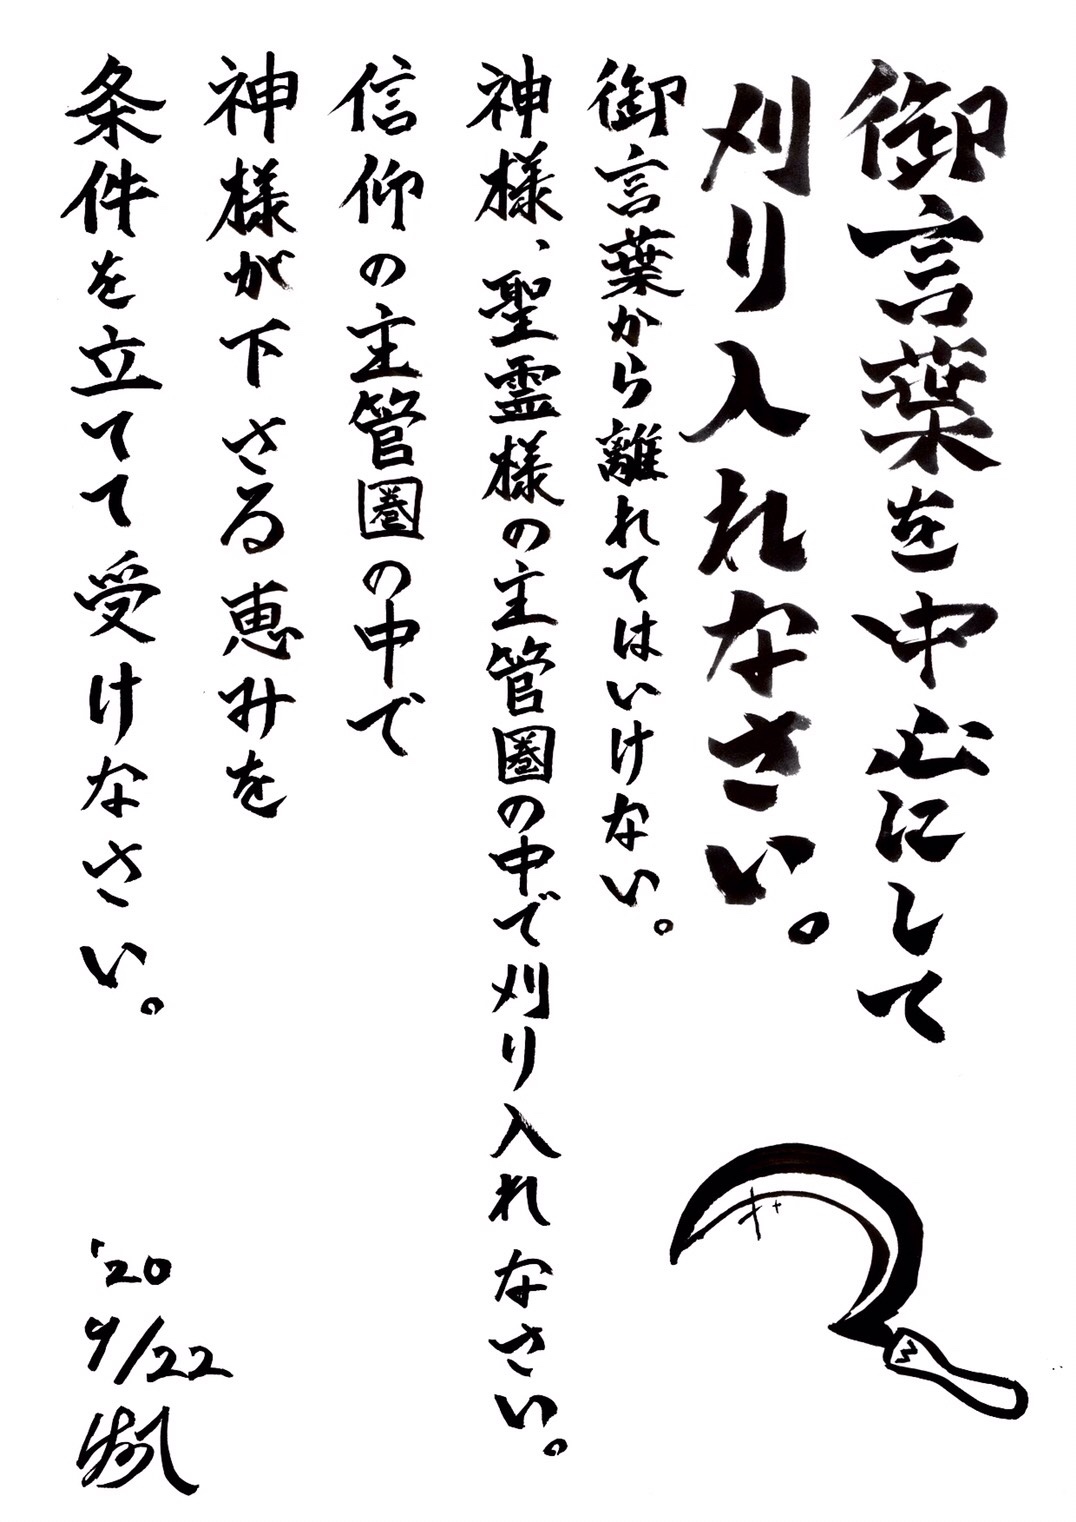 御言葉を中心にして
刈り入れなさい。
御言葉から離れてはいけない。
神様、聖霊様の主管圏の中で刈り入れなさい。
信仰の主管圏の中で
神様が下さる恵みを
条件を立てて受けなさい。
'20
9/22